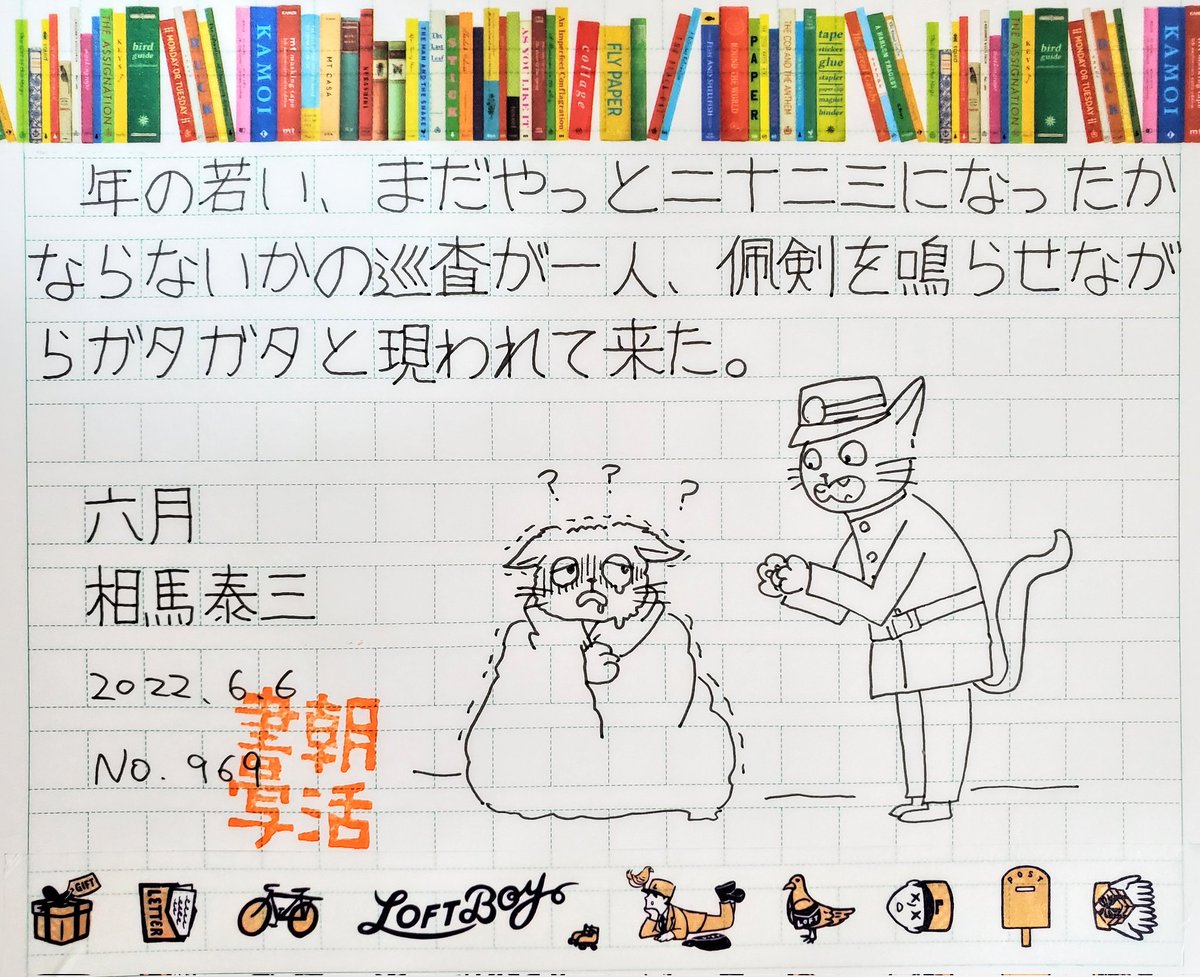 THE ASSIGNATION
bird guide
MONDAY OR TUESDAY
KAMOI
mt masking tape
MT CASA
THE MAN AND THE SNAKE
STICK
AS YOU LIKE IT
An Imperfect Conflagration
collage
FLY PAPER
ROUND THE WORLD
PAPER
THE COP AND THE ANTHEM
tape
sticker
glue
stapler
magnet
binder
THE ASSIGNATION
bird guide
MONDAY OR TUESDAY
KAMOI
年の若い、まだやっと二十二三になったか
ならないかの巡査が一人、佩剣を鳴らせなが
らガタガタと現われて来た。
? ? ?
六月
相馬泰三
2022.6.6
No.969
朝活
書写
GIFT
LETTER
LOFT BOY
POST